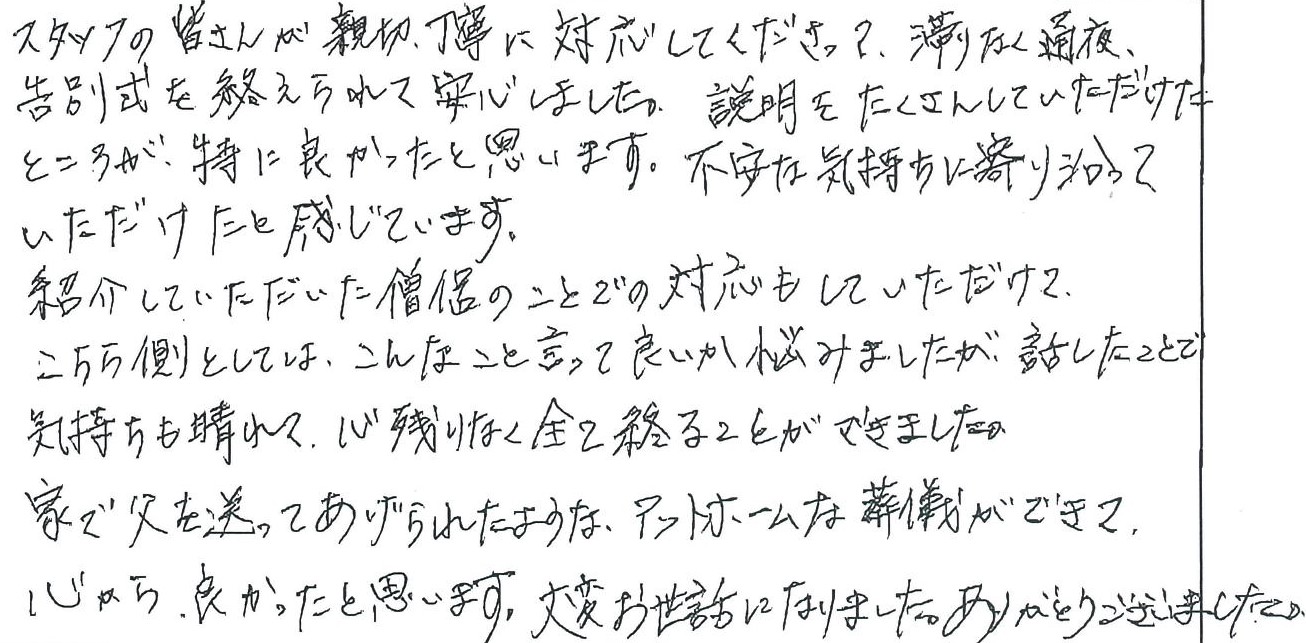 スタッフの皆さんが親切、丁寧に対応してくださって、滞りなく通夜、
告別式を終えられて安心しました。説明をたくさんしていただけた
ところが、特に良かったと思います。不安な気持ちに寄り沿って
いただけたと感じています。
紹介していただいた僧侶のことでの対応もしていただけて、
こちら側としては、こんなこと言って良いか悩みましたが、話したことで
気持ちも晴れて、心残りなく全て終ることができました。
家で父を送ってあげられたような、アットホームな葬儀ができて、
心から、良かったと思います。大変お世話になりました。ありがとうございました。